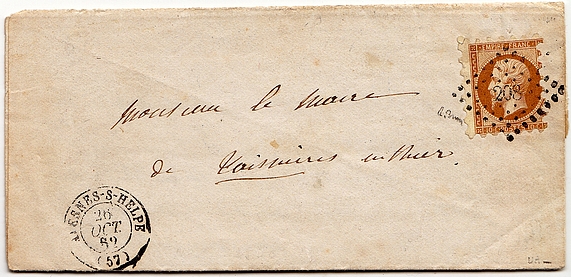 EMPIRE FRANC
208
Monsieur le Maire
de Taisnières en Thiér.
AVESNES-S-HELPE
26
OCT.
62
(57)